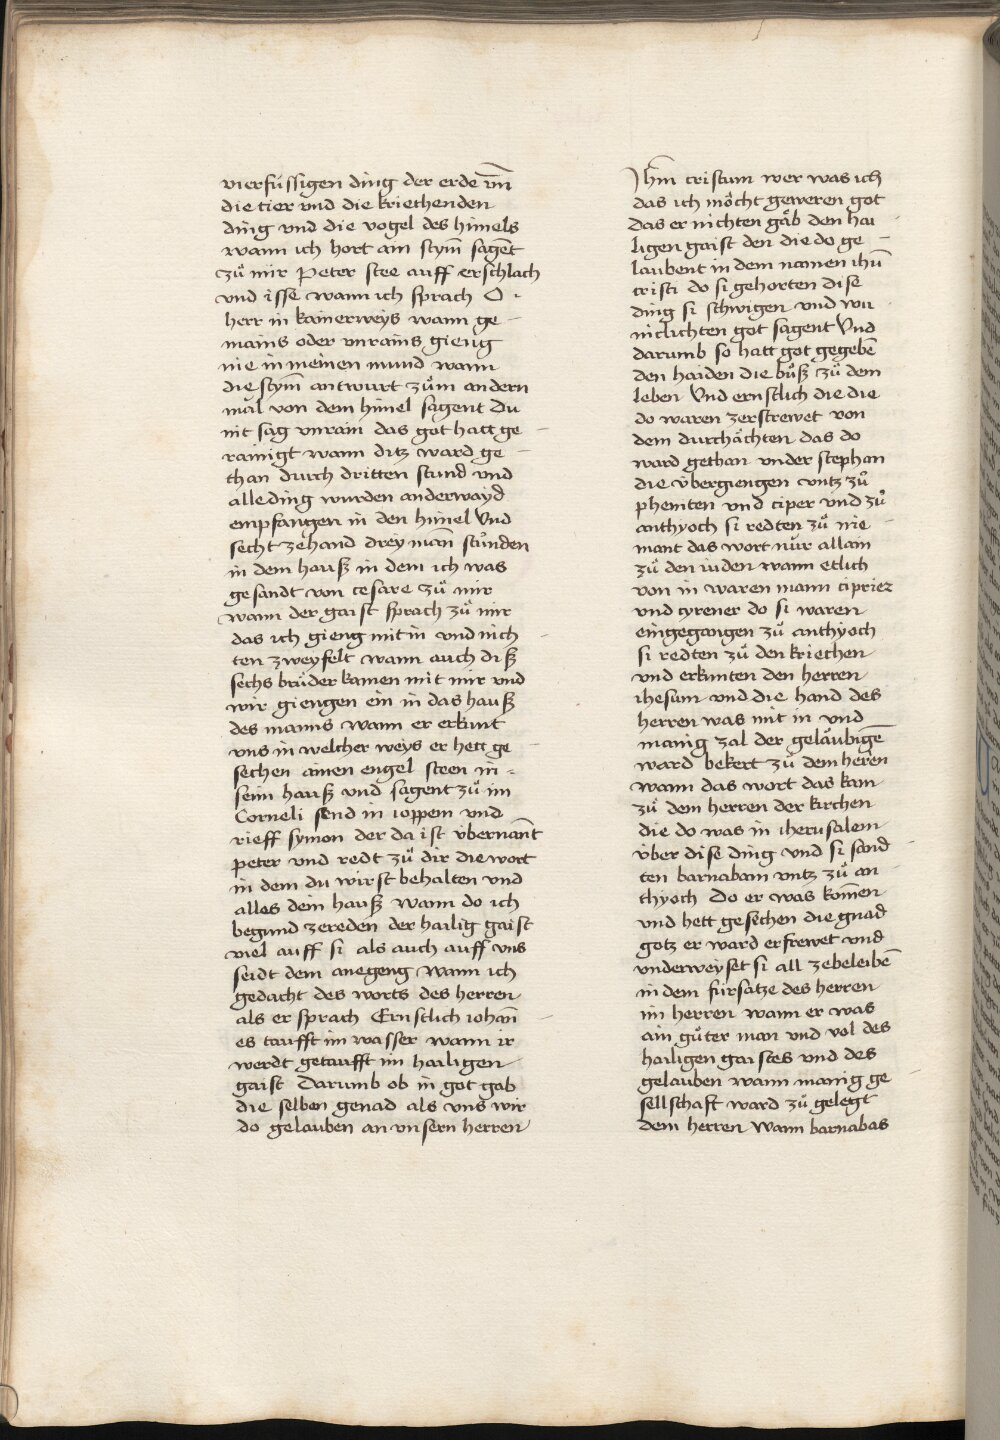 vierfüssigen ding der erde vn̄
die tier vnd die kriechenden
ding vnd die vogel des himels
wann ich hort ain stym̄ sagēt
zů mir Peter stee auff erschlach
vnd isse wann ich sprach O
herr in kainerweys wann ge
mains oder vnrains gieng
nie in meinen mund wann
die stym̄ antwurt zům andern
mal von dem himel sagent Du
nit sag vnrain das got hatt ge
rainigt wann ditz ward ge
than durch dritten stund vnd
alle ding wurden anderwayd
empfangen in den himel Vnd
secht zehand drey man̄ stůnden
in dem hauß in dem ich was
gesandt von cesare zů mir
wann der gaist sprach zů mir
das ich gieng mit in vnd nich
ten zweyfelt wann auch diß
sechs brůder kamen mit mir vnd
wir giengen ein in das hauß
des manns wann er erkunt
vns in welcher weys er hett ge
sechen ainen engel steen in
seim hauß vnd sagent zů im
Corneli send in ioppem vnd
rieff symon der da ist v̈bernan̄t
peter vnd redt zů dir die wort
in dem du wirst behalten vnd
alles dein hauß wann do ich
begund zereden der hailig gaist
viel auff si als auch auff vns
seidt dem anegeng Wann ich
gedacht des worts des herren
als er sprach Ernstlich iohan̄
es taufft im wasser wann ir
werdt getaufft im hailigen
gaist Darumb ob in got gab
die selben genad als vns wir
do gelauben an vnsern herren
Jhm̄ cristum wer was ich
das ich möcht geweren got
das er nichten gäb den hai
ligen gaist den die do ge
laubent in dem namen ihū
cristi do si gehorten dise
ding si schwigen vnd wu
niclichten got sagent Vnd
darumb so hatt got gegebē
den haiden die bůß zů dem
leben Vnd ernstlich die die
do waren zerstrewet von
dem durchächten das do
ward gethan vnder stephan
die v̈bergiengen vntz zů
pheniten vnd ciper vnd zů
anthyoch si redten zů nie
mant das wort nůr allain
zů den iuden wann etlich
von in waren mann ciprier
vnd cyrener do si waren
eingegangen zů anthyoch
si redten zů den kriechen
vnd erkunten den herren
ihesum vnd die hand des
herren was mit in vnd
manig zal der gelaübigē
ward bekert zů dem herren
wann das wort das kam
zů dem herren der kirchen
die do was in iherusalem
v̈ber dise ding vnd si sand
ten barnabam vntz zů an
thyoch Do er was kom̄en
vnd hett gesechen die gnad
gotz er ward erfrewet vnd
vnderweyset si all zebeleibē
in dem fürsatze des herren
im herren wann er was
ain gůter man vnd vol des
hailigen gaistes vnd des
gelauben wann manig ge
sellschaft ward zů gelegt
dem herren Wann barnabas